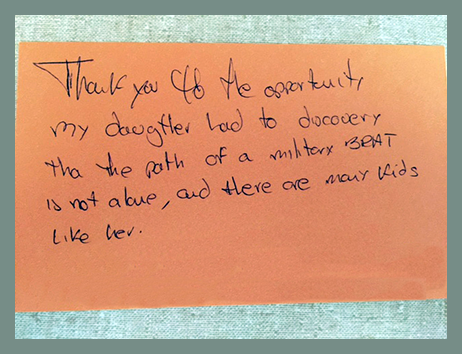 Thank you 4 the opportunity
my daugther had to discovery
tha the path of a military BRAT
is not alone, and there are many kids
like her.